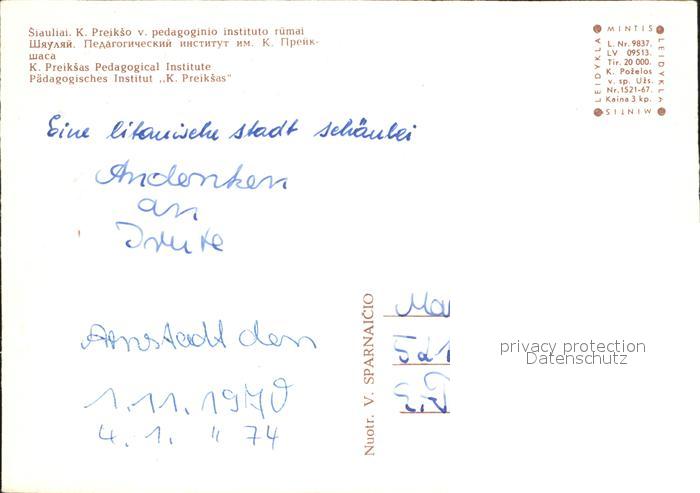 Šiauliai. K. Preikšo v. pedagoginio instituto rūmai
Шяуляй. Педагогический институт им. К. Прейк-
шаса
K. Preikšas Pedagogical Institute
Pädagogisches Institut „K. Preikšas“
MINTIS
LEIDYKLA
MINTIS
LEIDYKLA
L. Nr. 9837.
LV 09513.
Tir. 20 000.
K. Poželos
v. sp. Užs.
Nr. 1521-67.
Kaina 3 kp.
Eine litauische stadt schäulei
Andenken
an
Irute
Arnstadt den
1.11.1970
4. 1. " 74
Nuotr. V. SPARNAIČIO
Ma
521
privacy protection
Datenschutz